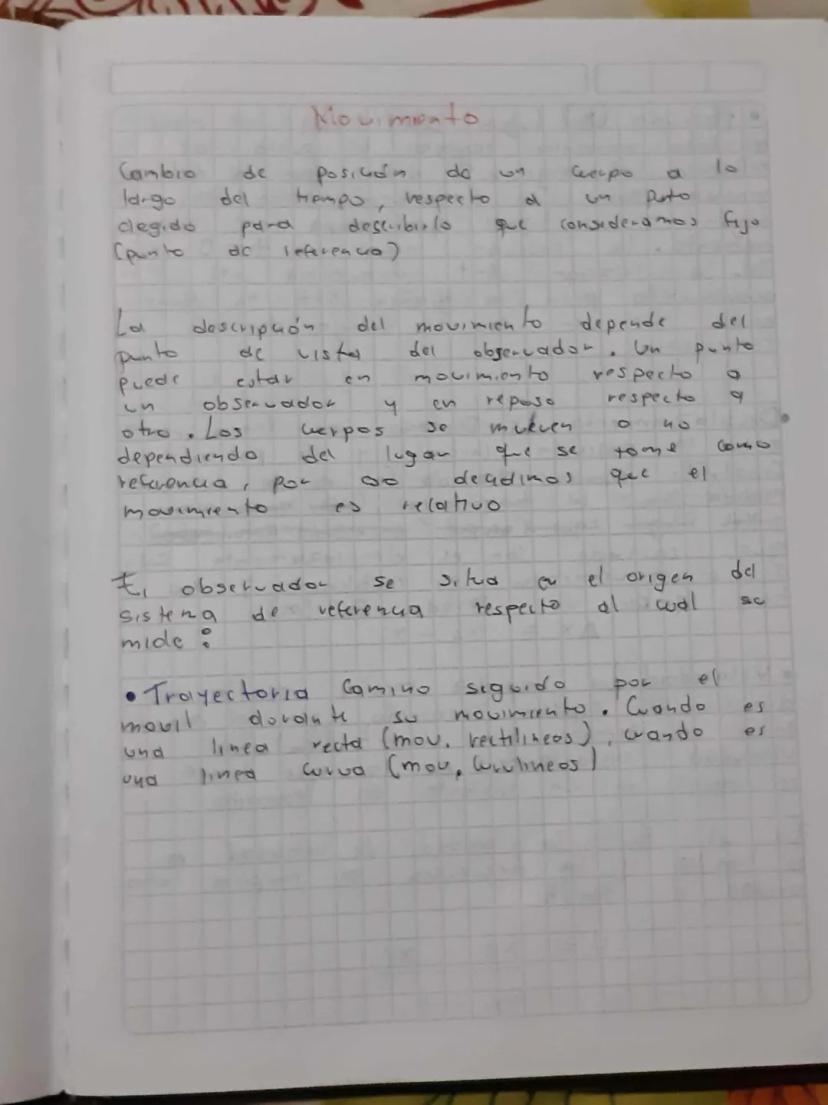 Movimiento
Cambio de posición de un cuerpo a lo
largo del tiempo, respecto a un puto
elegido para describirlo que consideramos fijo
(punto de referencia)
La descripción del movimiento depende del
punto de vista del observador. Un punto
puede estar en movimiento respecto a
un observador y en reposo respecto a
otro. Los cuerpos se mueven o no
dependiendo del lugar que se tome como
referencia, por eso decidimos que el
movimiento es relativo
El observador se situa en el origen del
sistema de referencia respecto al cual se
mide:
• Trayectoria Camino seguido por el
movil durante su movimiento. Cuando es
una linea recta (mov. rectilineos), cuando es
una linea curva (mov, curvilineos)